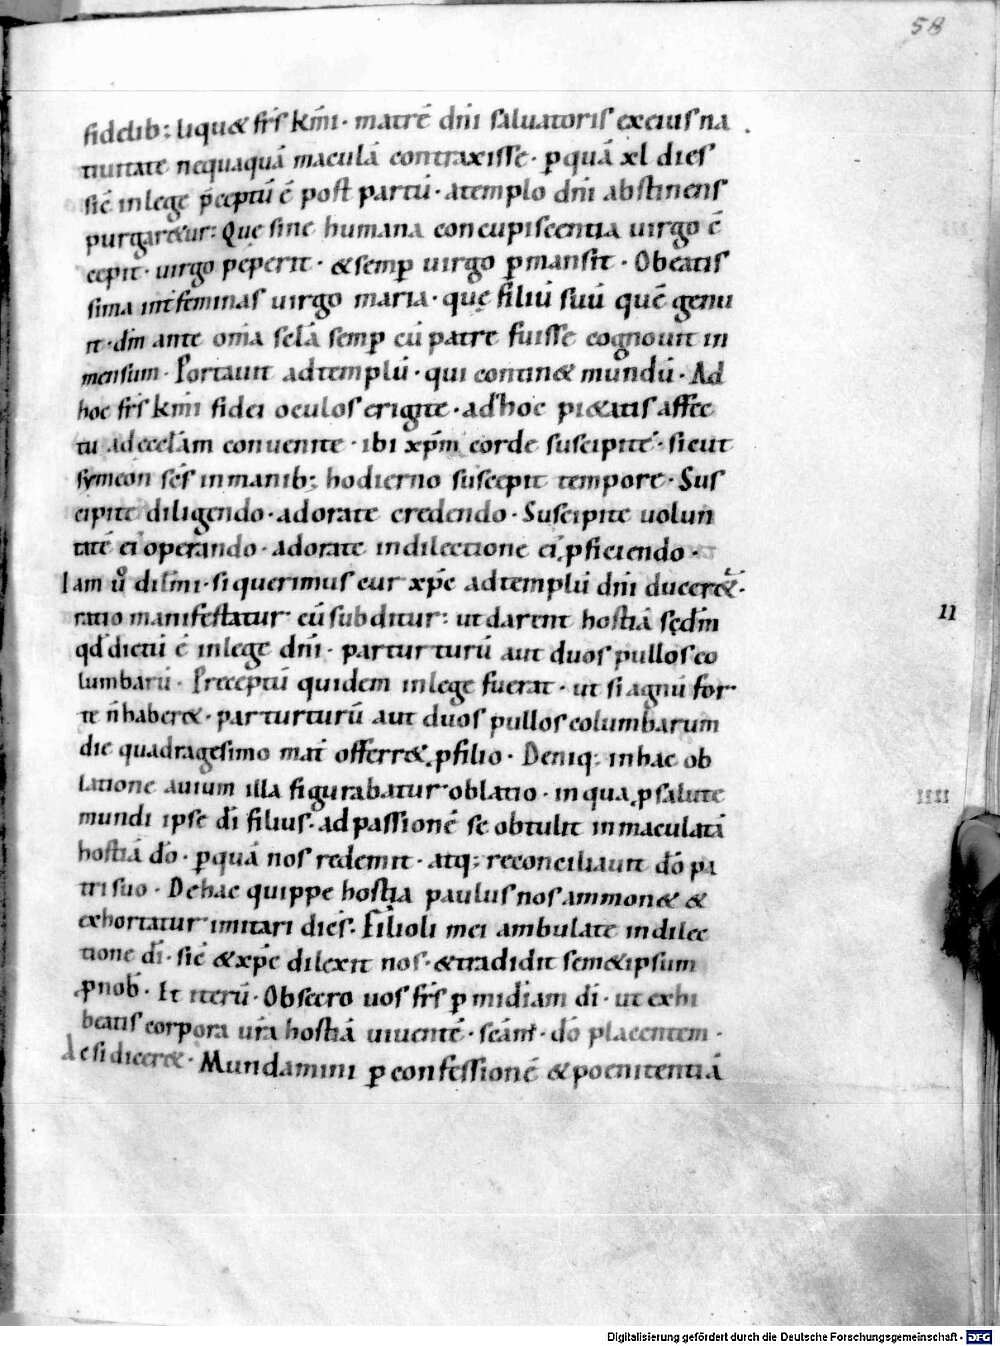 58
fidelib; liqu& fr̄s k̄mi · matrē dn̄i saluatoris ex eius na
tiuitate nequaquā maculā contraxisse · ꝑquā xl dies
sic̄ in lege p̄ceptū ē post partū · atemplo dn̄i abstinens
purgar&ur: Quę sine humana concupiscentia uirgo cē
cepit · uirgo peperit · & semꝑ uirgo ꝑmansit · O beatis
sima int̄ feminas uirgo maria · quę filiū suū quē genu
it · dm̄ ante om̄ia sc̄la semꝑ cū patre fuisse cognouit in
mensum · Portauit ad templū · qui contin& mundū · Ad
hoc fr̄s k̄mi fidei oculos erigite · ad hoc pi&atis affec
tu ad eccl̄am conuenite · ibi xp̄m corde suscipite · sicut
symeon sc̄s in manib; hodierno suscepit tempore · Sus
cipite diligendo · adorate credendo · Suscipite uolun
tatē ei operando · adorate in dilectione ei ꝓficiendo ·
Iam u̇o dil̄mi · si querimus cur xp̄c ad templū dn̄i ducer&ur ·
ratio manifestatur cū subditur: ut darent hostiā sec̄dm
qd̄ dictū ē in lege dn̄i · par turturū aut duos pullos co
lumbarū · Preceptū quidem in lege fuerat · ut si agnū for
te n̄ haber& · par turturū aut duos pullos columbarum
die quadragesimo mat̄ offerr& ꝓ filio · Deniq; in hac ob
latione auium illa figurabatur oblatio · in qua ꝓ salute
mundi ipse dī filius · ad passionē se obtulit inmaculatā
hostiā dō · ꝑquā nos redemit · atq; reconciliauit dō pa
tri suo · De hac quippe hostia paulus nos ammon& &
exhortatur imitari dicēs · Filioli mei ambulate in dilec
tione dī · sic̄ & xp̄c dilexit nos · & tradidit sem&ipsum
ꝓ nob̄ · It iterū · Obsecro uos fr̄s ꝑ mīdiam dī · ut exhi
beatis corpora ur̄a hostiā uiuentē · sc̄am · dō placentem ·
Ac si dicer& · Mundamini ꝑ confessionē & poenitentiā
II
Digitalisierung gefördert durch die Deutsche Forschungsgemeinschaft - DFG